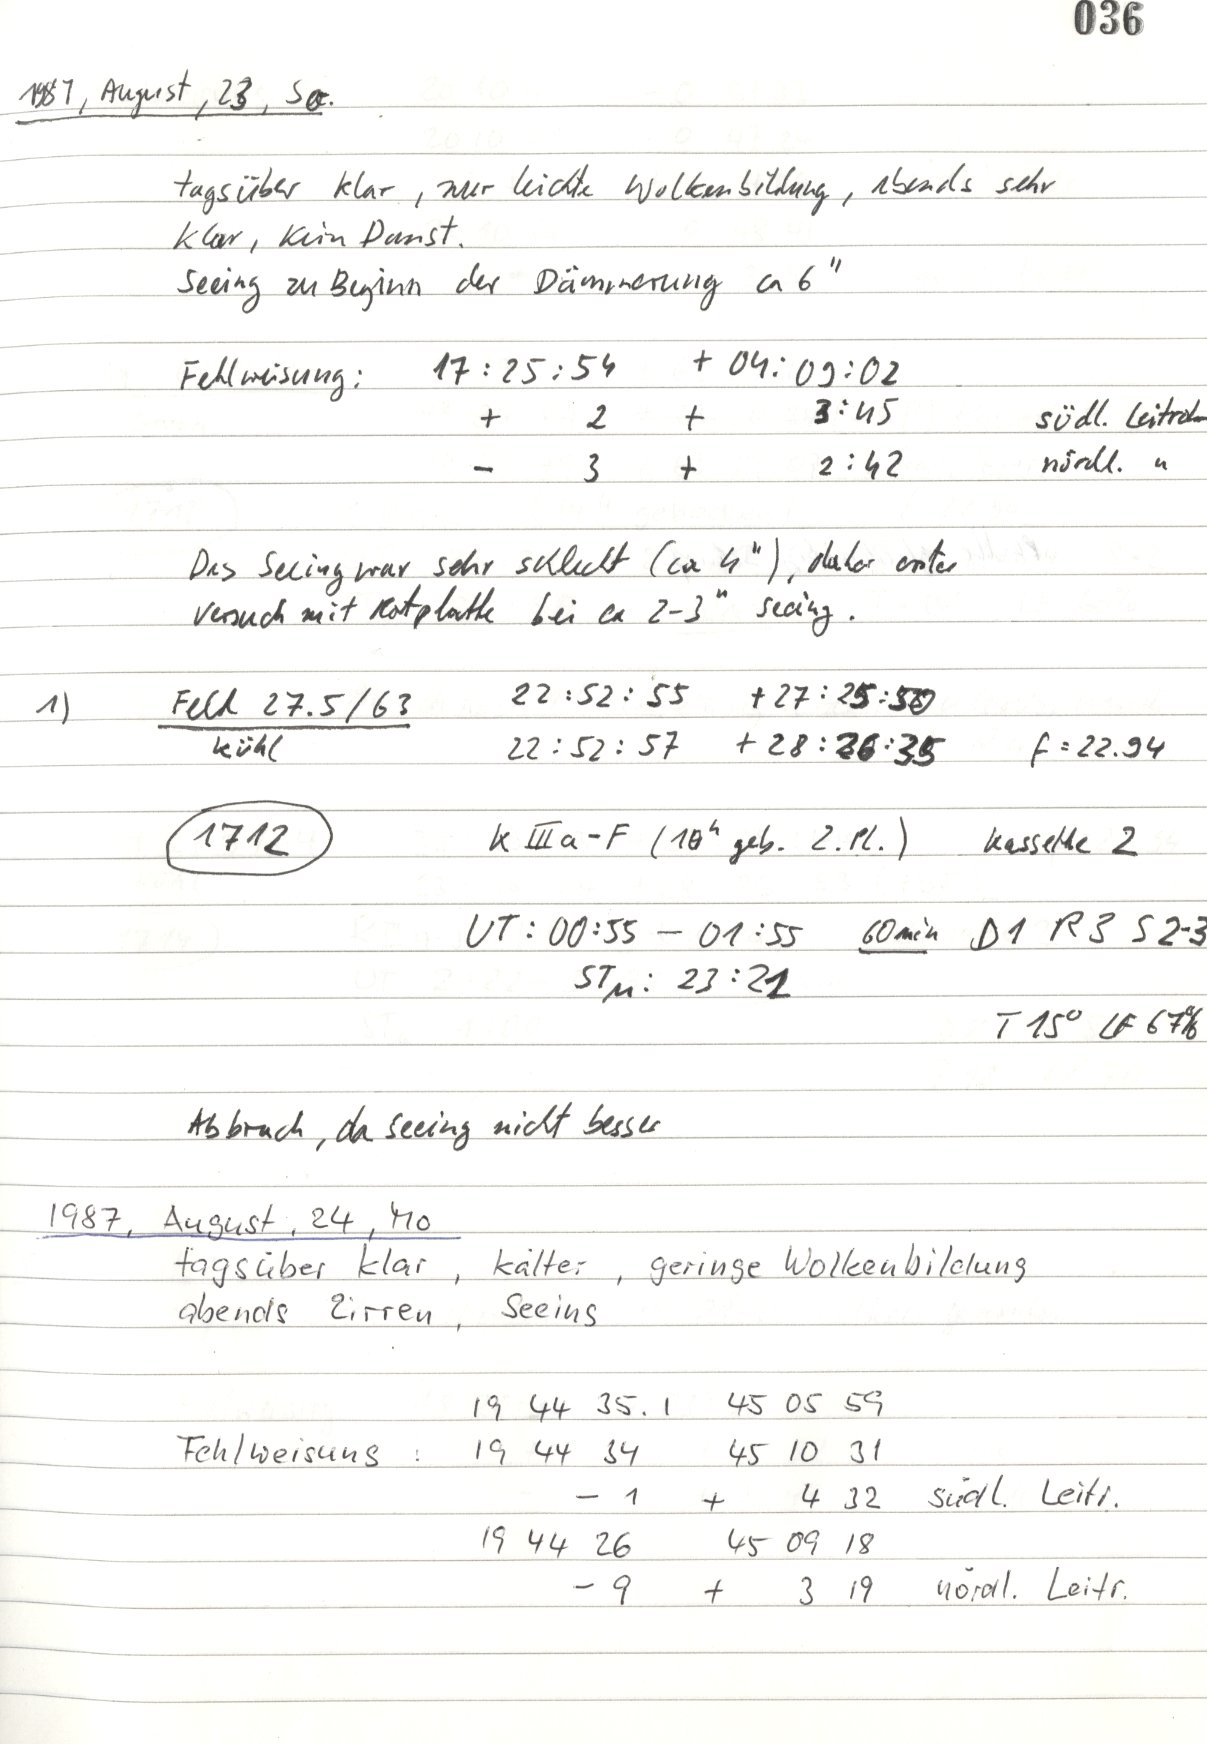 036
1987, August, 23, So.
tagsüber klar, nur leichte Wolkenbildung, abends sehr
klar, kein Dunst.
Seeing zu Beginn der Dämmerung ca 6"
Fehlweisung: 17:25:54 + 04:09:02
+ 2 + 3:45 südl. Leitrohr
- 3 + 2:42 nördl. "
Das Seeing war sehr schlecht (ca 4"), daher erster
Versuch mit Rotplatte bei ca 2-3" seeing.
1) Feld 27.5/63 22:52:55 +27:25:50
kühl 22:52:57 +28:26:35 f=22.94
1712 K IIIa-F (10h geb. 2.Pl.) Kassette 2
UT: 00:55 – 01:55 60min D1 R3 S2-3
STM: 23:21
T 15° LF 67%
Abbruch, da seeing nicht besser
1987, August, 24, Mo
tagsüber klar, kälter, geringe Wolkenbildung
abends Zirren, Seeing
19 44 35.1 45 05 59
Fehlweisung: 19 44 34 45 10 31
- 1 + 4 32 südl. Leitr.
19 44 26 45 09 18
- 9 + 3 19 nördl. Leitr.